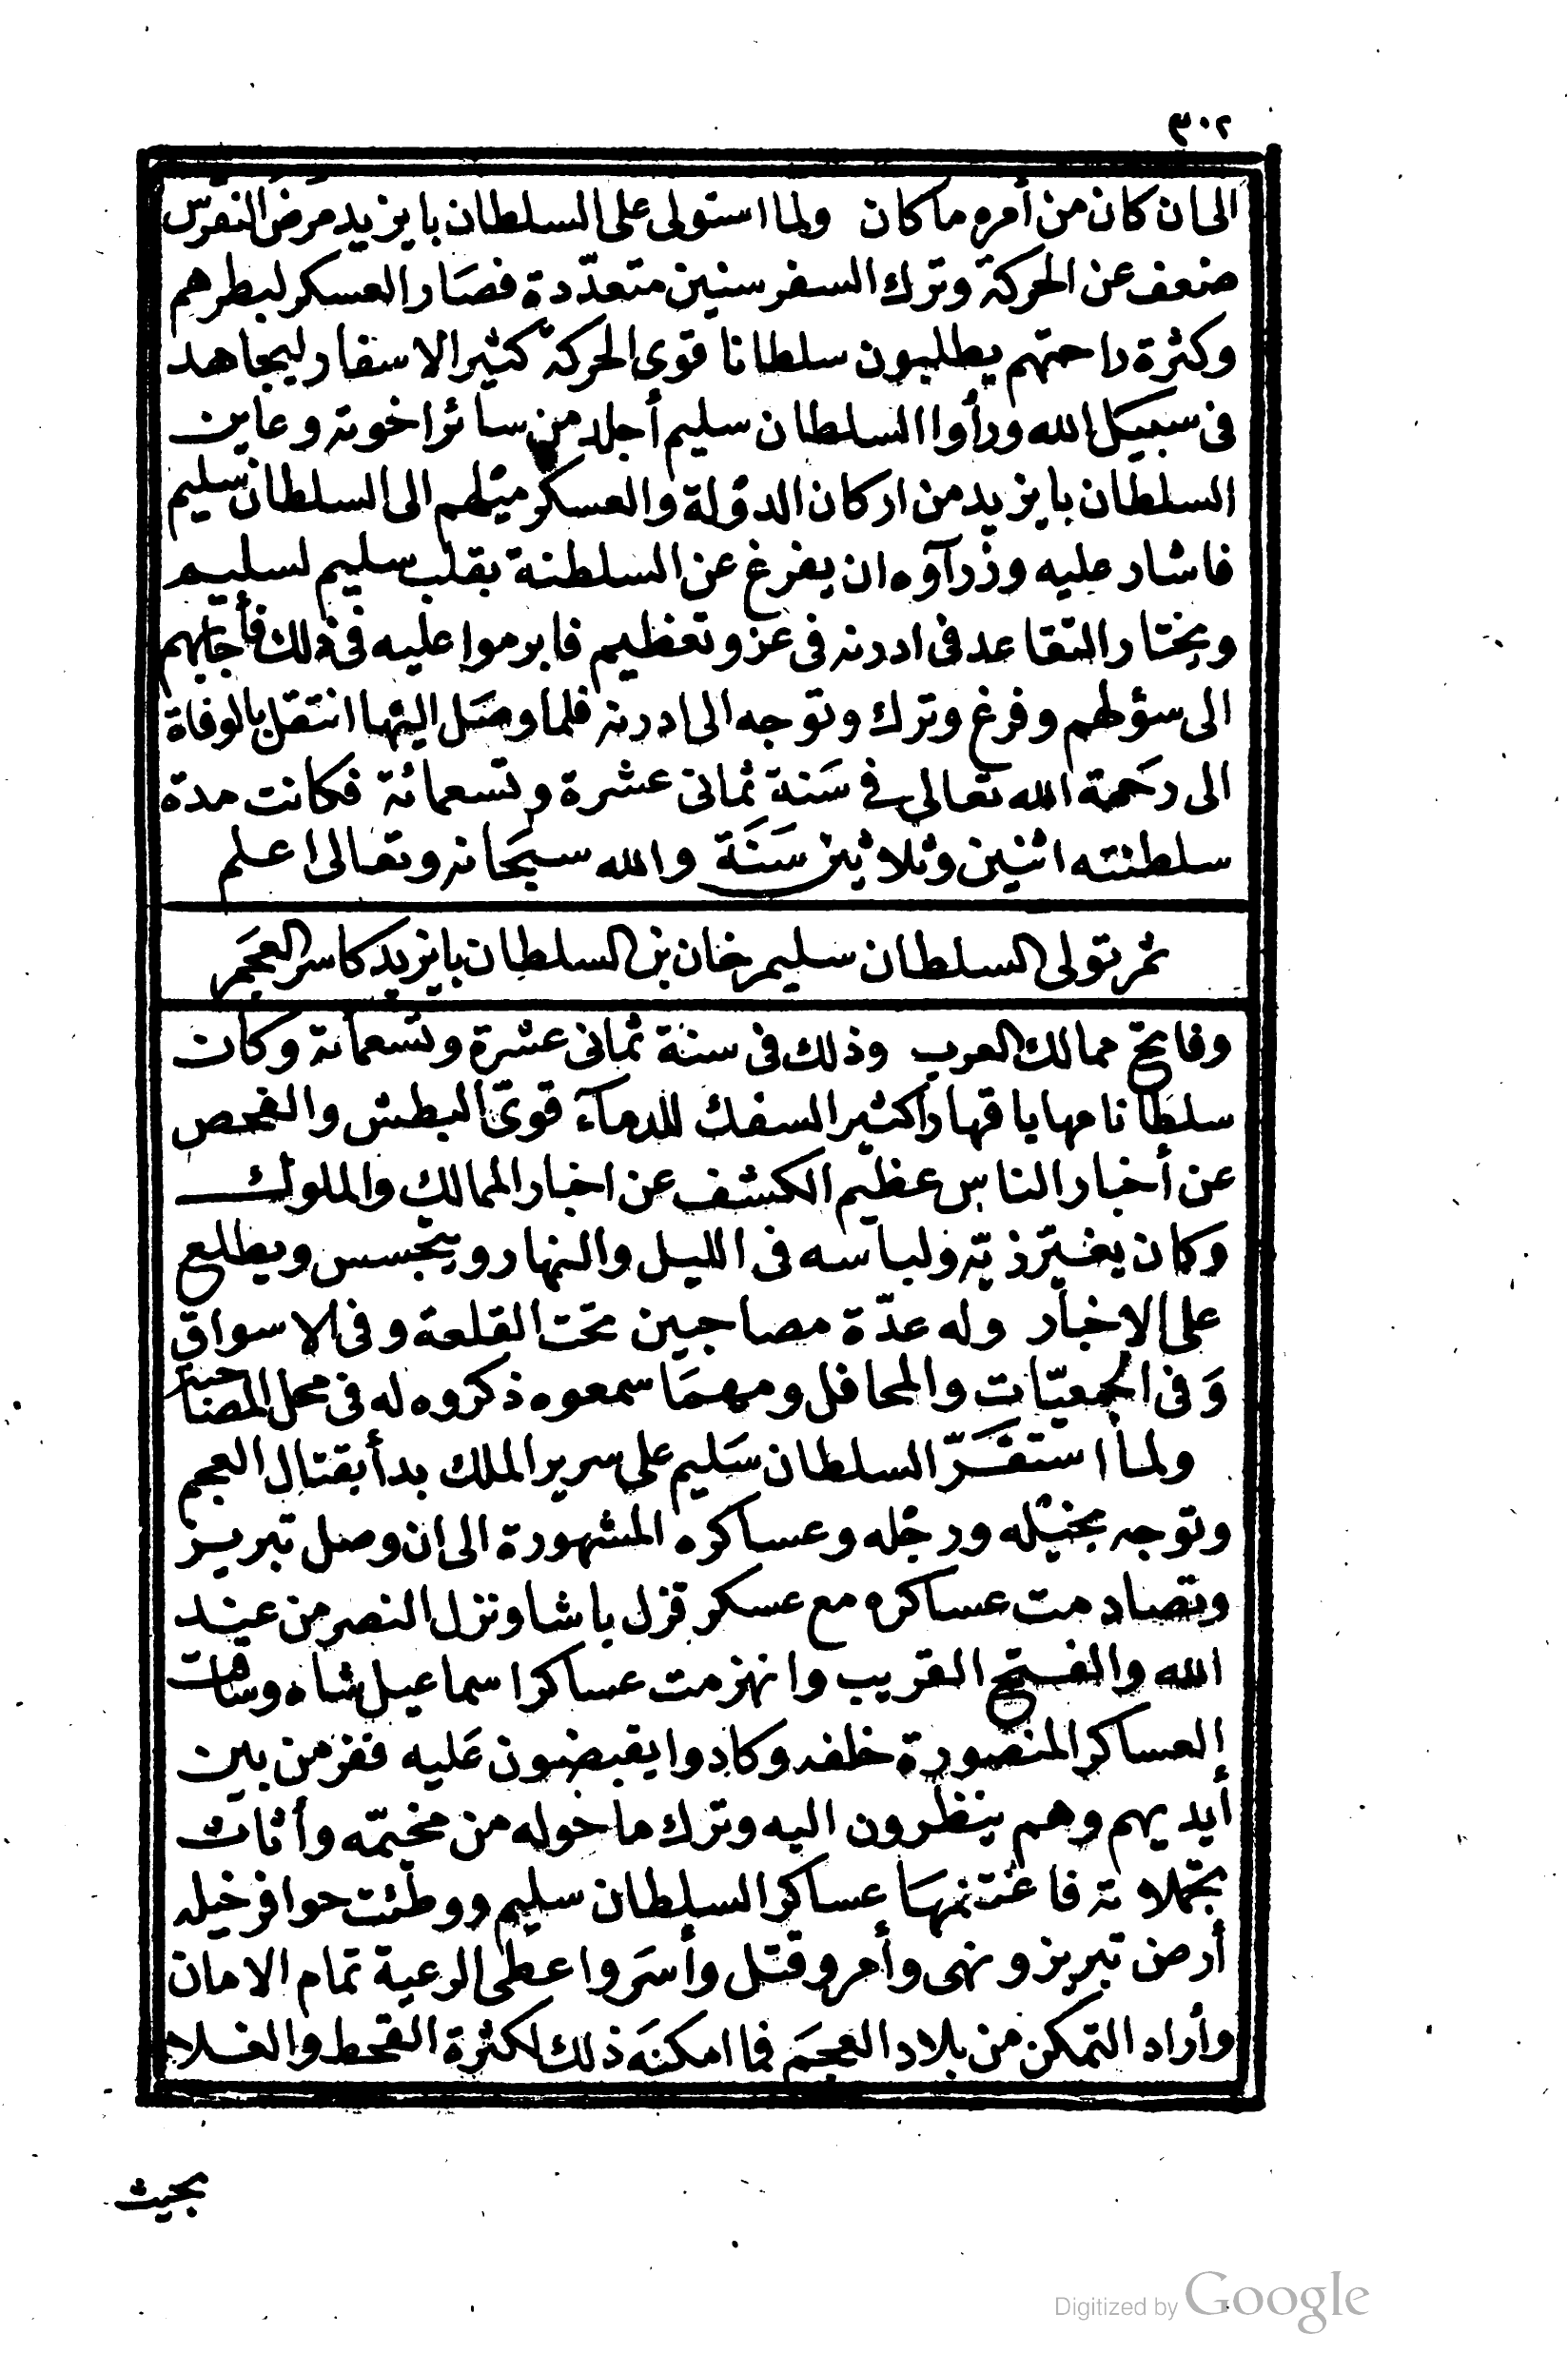 ٣٠٢
الى ان كان من أمره ما كان ولما استولى على السلطان بايزيد مَرَض النقرس
ضعف عن الحركة وترك السفر سنين متعدّدة فصَار العسكر لبطرهم
وكثرة راحتهم يطلبون سلطانا قوى الحركة كثير الاسفار ليجاهد
فى سبيل الله ورأوا السلطان سليم أجلد من سائر اخوته وعاين
السلطان بايزيد من اركان الدوْلة والعسكر ميْلهم الى السلطان سليم
فاشار عليه وزرآوه ان يفرغ عن السلطنة بقلب سليم لسليم
ويختار التقاعد فى ادرنه فى عز وتعظيم فابرموا عليه فى ذلك فأجابهم
الى سؤلهم وفرغ وترك وتوجه الى ادرنه فلما وصَل اليْها انتقل بالوفاة
الى رحَمة الله تعالى فے سَنة ثمانى عشرة وتسعمائة فكانت مدة
سلطنته اثنين وثلاثين سَنَة والله سبحَانه وتعالى اعلم
ثم تولى السلطان سليم خان بن السلطان بايزيد كاسر العجَم
وفاتح ممالك العرب وذلك فى سنة ثمانى عشرة وتسعمائة وكان
سلطانا مهابا قهارا كثير السفك للدمآء قوىّ البطش والفحص
عن أخبار الناس عظيم الكشف عن اخبار الممالك والملوك
وكان يغيّر زيّه ولباسه فى الليل والنهار ويتجسس ويطلع
على الاخبار وله عدّة مصاحبين تحت القلعة وفى الاسواق
وَفى الجمعيّات والمحافل ومهمَا سمعوه ذكروه له فى محل المصَاحبة
ولما استقَرّ السلطان سَليم على سرير الملك بدأ بقتال العجم
وتوجه بخيْله ورجْله وعساكره المشهورة الى ان وصل تبريز
وتصادمت عساكره مع عسكر قزل باشا ونزل النصر من عند
الله والفتح القريب وانهزمت عساكر اسماعيل شاه وساقت
العساكر المنصورة خلفه وكادوا يقبضون عَليه ففر من بين
أيديهم وهم ينظرون اليه وترك ما حوله من مخيّمه وأثاث
بتجملاته فاغتنمهَا عساكر السلطان سليم ووطئت حوافر خيله
أرض تبريز ونهى وأمر وقتل وأسَر واعطى الرعية تمام الامان
وأراد التمكن من بلاد العجَم فما امكنَه ذلك لكثرة القحط والغلاء
بحيث
Digitized by Google